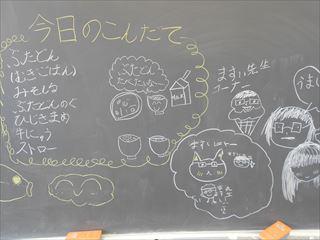 今日のこんだて
ぶたどん
(むぎごはん)
みそしる
ぶたどんのぐ
ひじきまめ
牛にゅう
ストロー
ぶたどん
たべたいな～
Milk
ますい先生
コーナー